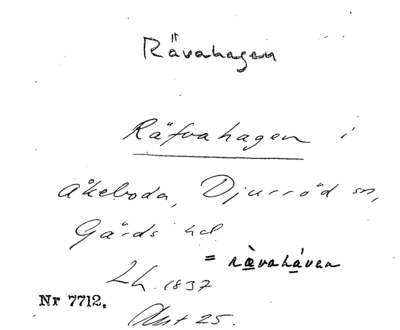 Rävahagen
Räfvahagen i
Åkeboda, Djurröd sn,
Gärds hd
= rävahàven
Lh. 1837
Nr 7712.
Akt 25.